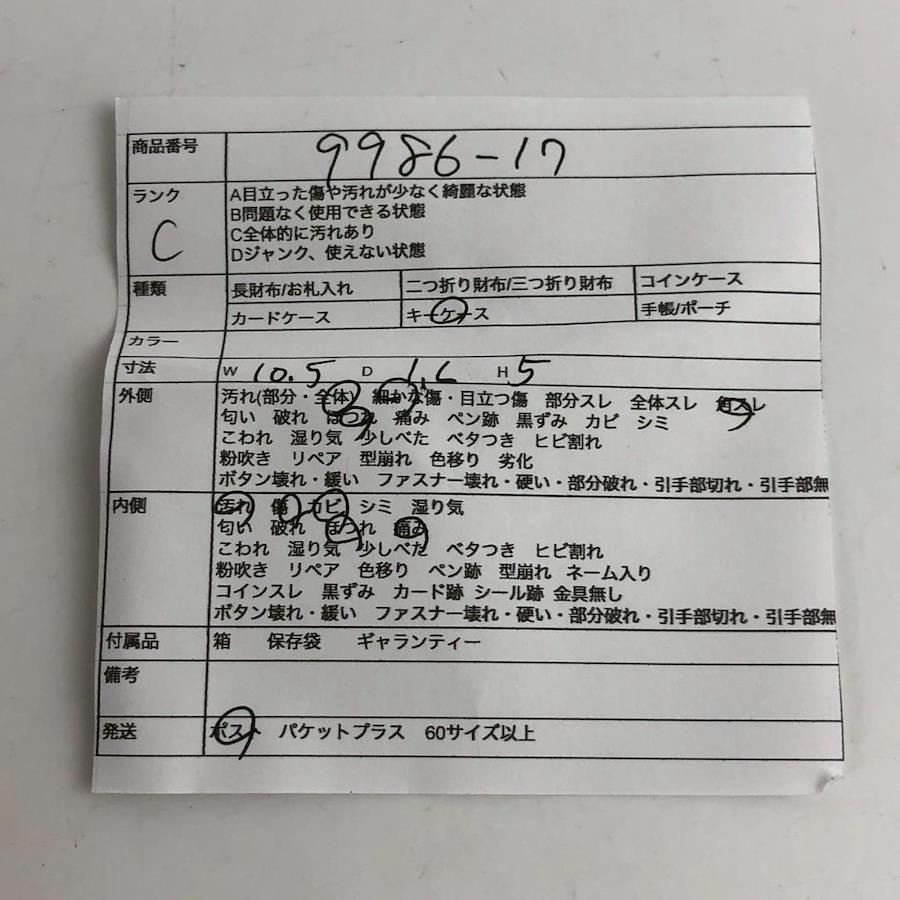 商品番号 9986-17
ランク A目立った傷や汚れが少なく綺麗な状態
B問題なく使用できる状態
C C全体的に汚れあり
Dジャンク、使えない状態
種類 長財布/お札入れ 二つ折り財布/三つ折り財布 コインケース
カードケース キーケース 手帳/ポーチ
カラー
寸法 W 10.5 D H 5
外側 汚れ(部分・全体) 細かな傷・目立つ傷 部分スレ 全体スレ 角スレ
匂い 破れ ほつれ 痛み ペン跡 黒ずみ カビ シミ
こわれ 湿り気 少しべた ベタつき ヒビ割れ
粉吹き リペア 型崩れ 色移り 劣化
ボタン壊れ・緩い ファスナー壊れ・硬い・部分破れ・引手部切れ・引手部無
内側 汚れ 傷 カビ シミ 湿り気
匂い 破れ ほつれ 痛み
こわれ 湿り気 少しべた ベタつき ヒビ割れ
粉吹き リペア 色移り ペン跡 型崩れ ネーム入り
コインスレ 黒ずみ カード跡 シール跡 金具無し
ボタン壊れ・緩い ファスナー壊れ・硬い・部分破れ・引手部切れ・引手部無
付属品 箱 保存袋 ギャランティー
備考
発送 ポスト パケットプラス 60サイズ以上